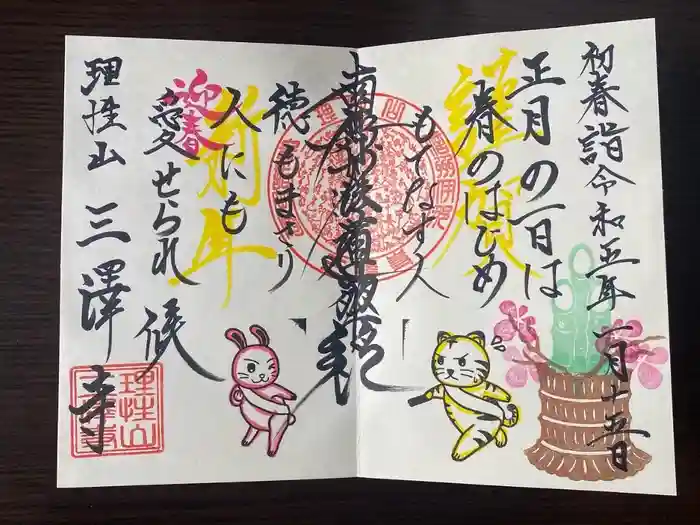 初春詣令和五年一月十五日
正月の一日は
春のはじめ
謹賀
もてなす人
南無妙法蓮華経
徳もまさり
人にも
新年
迎春
愛せられ候
理性山三澤寺
理性山